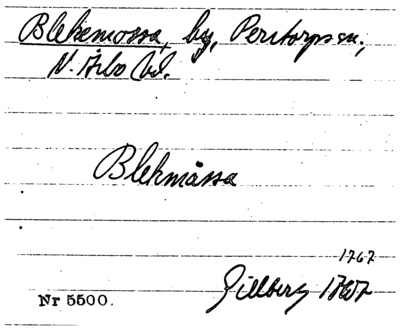 Blekemossa, by, Perstorps sn.,
N. Åsbo hd.
Blekmåssa
1767
Gillberg 1767
Nr 5500.